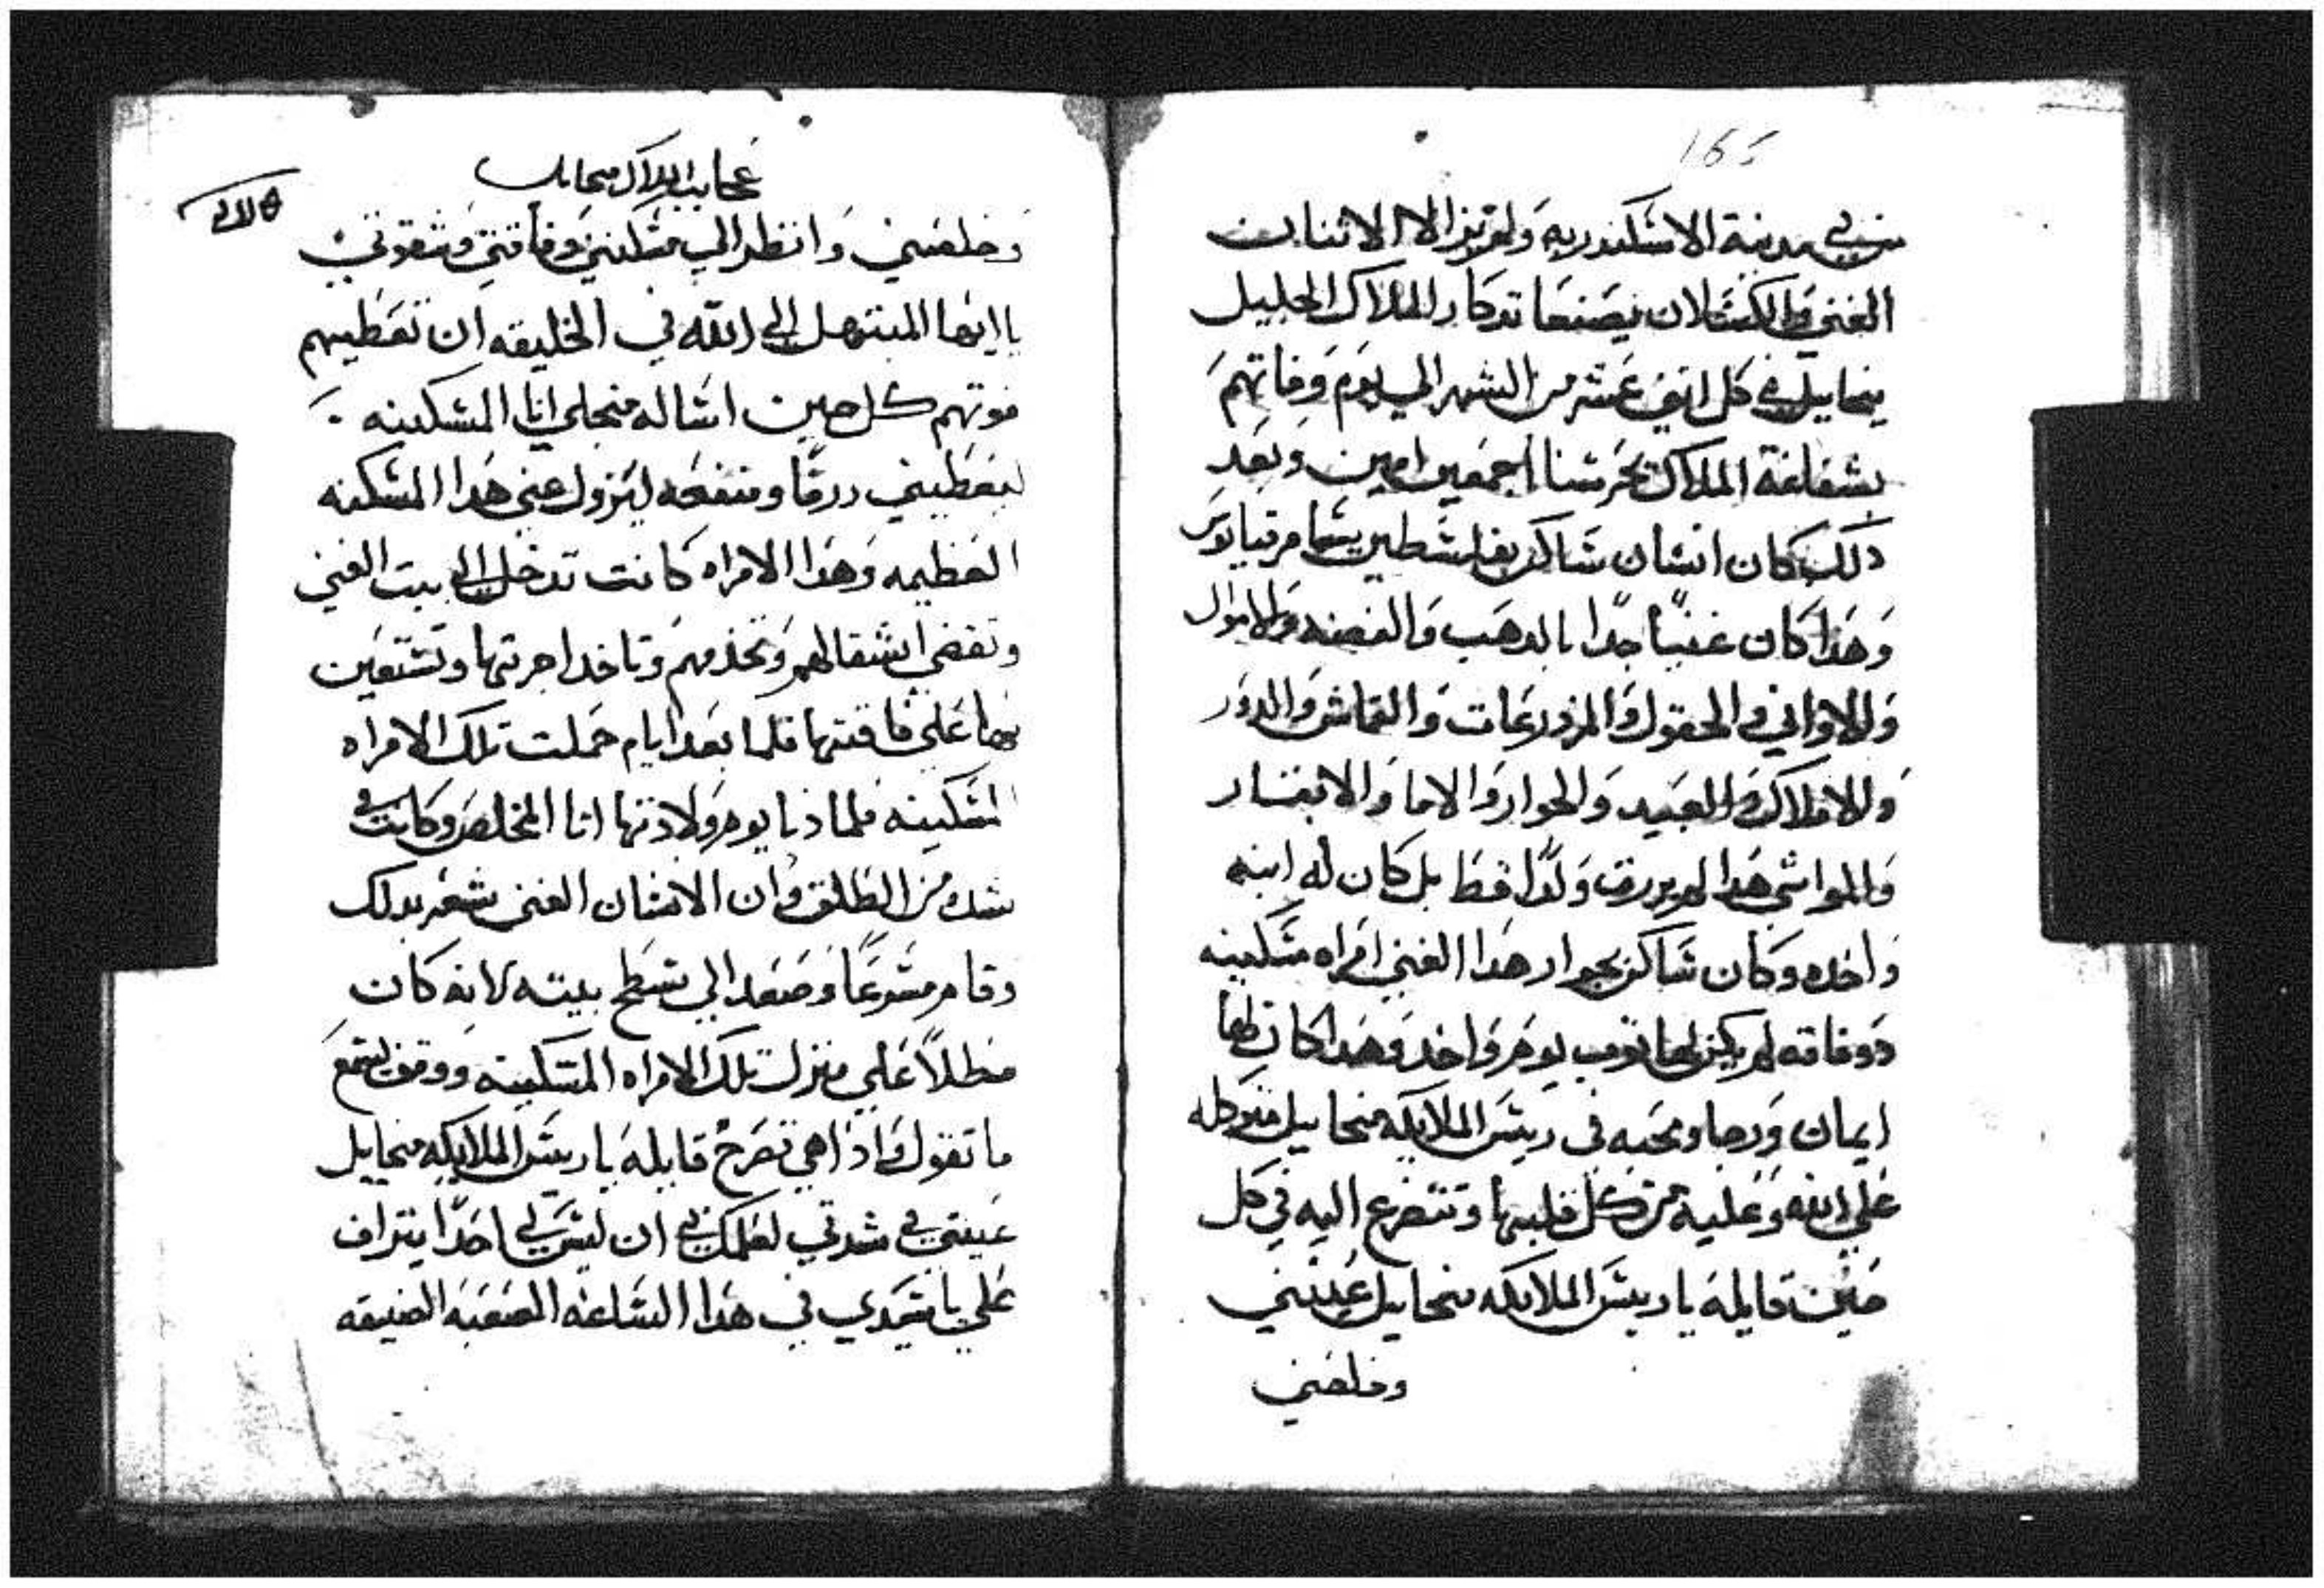 165
في مدينة الاسكندريه ولم يزالا الاثنان
الغني والكسلان يصنعا تدكار الملاك الجليل
ميخاييل في كل اتني عشر من الشهر الي يوم وفاتهم
بشفاعة الملاك يحرسنا اجمعين امين وبعد
دلك كان انسان ساكن بفلسطين يسما مرقيانوس
وهدا كان غنياً جدا بالدهب والفضه والاموال
والاواني والحقول والمزدرعات والقماش والدور
والاملاك والعبيد والجوار والاما والابقار
والمواشي هدا لم يرزق ولدا قط بل كان له ابنه
واحده وكان ساكن بجوار هدا الغني امراه مسكينه
دو فاقه لم يكن لها قوت يوم واحد وهدا كان لها
ايمان ورجا ومحبه في ريس الملايكه ميخاييل متوكله
علي الله وعليه من كل قلبها وتتضرع اليه في كل
حين قايلة يا ريس الملايكه ميخاييل عينني
وخلصني
عجايب الملاك ميخاييل
وخلصني وانظر الي مسكنتي وفاقتي وشقوتي
يا ايها المبتهل الي الله في الخليقه ان تعطيهم
قوتهم كل حين اساله من اجلي انا المسكينه
ليعطيني رزقا ومنفعه ليزول عني هدا المسكنه
العظيمه وهدا الامراه كانت تدخل الي بيت الغني
وتقضي اشغالهم وتخدمهم وتاخد اجرتها وتستعين
بها علي فاقتها فلما بعد ايام حملت تلك الامراه
المسكينه فلما دنا يوم ولادتها اتا المخاض وكانت في
شده من الطلق وان الانسان الغني شعر بدلك
وقام مسرعاً وصعد الي سطح بيته لانه كان
مطلاً علي منزل تلك الامراه المسكينه ووقف يسمع
ما تقول واذا هي تصرخ قايلة يا ريس الملايكه ميخاييل
عينني في شدتي لعلمك بي ان ليس لي احدا يتراف
علي يا سيدي في هدا الساعه الصعبه الضيقه